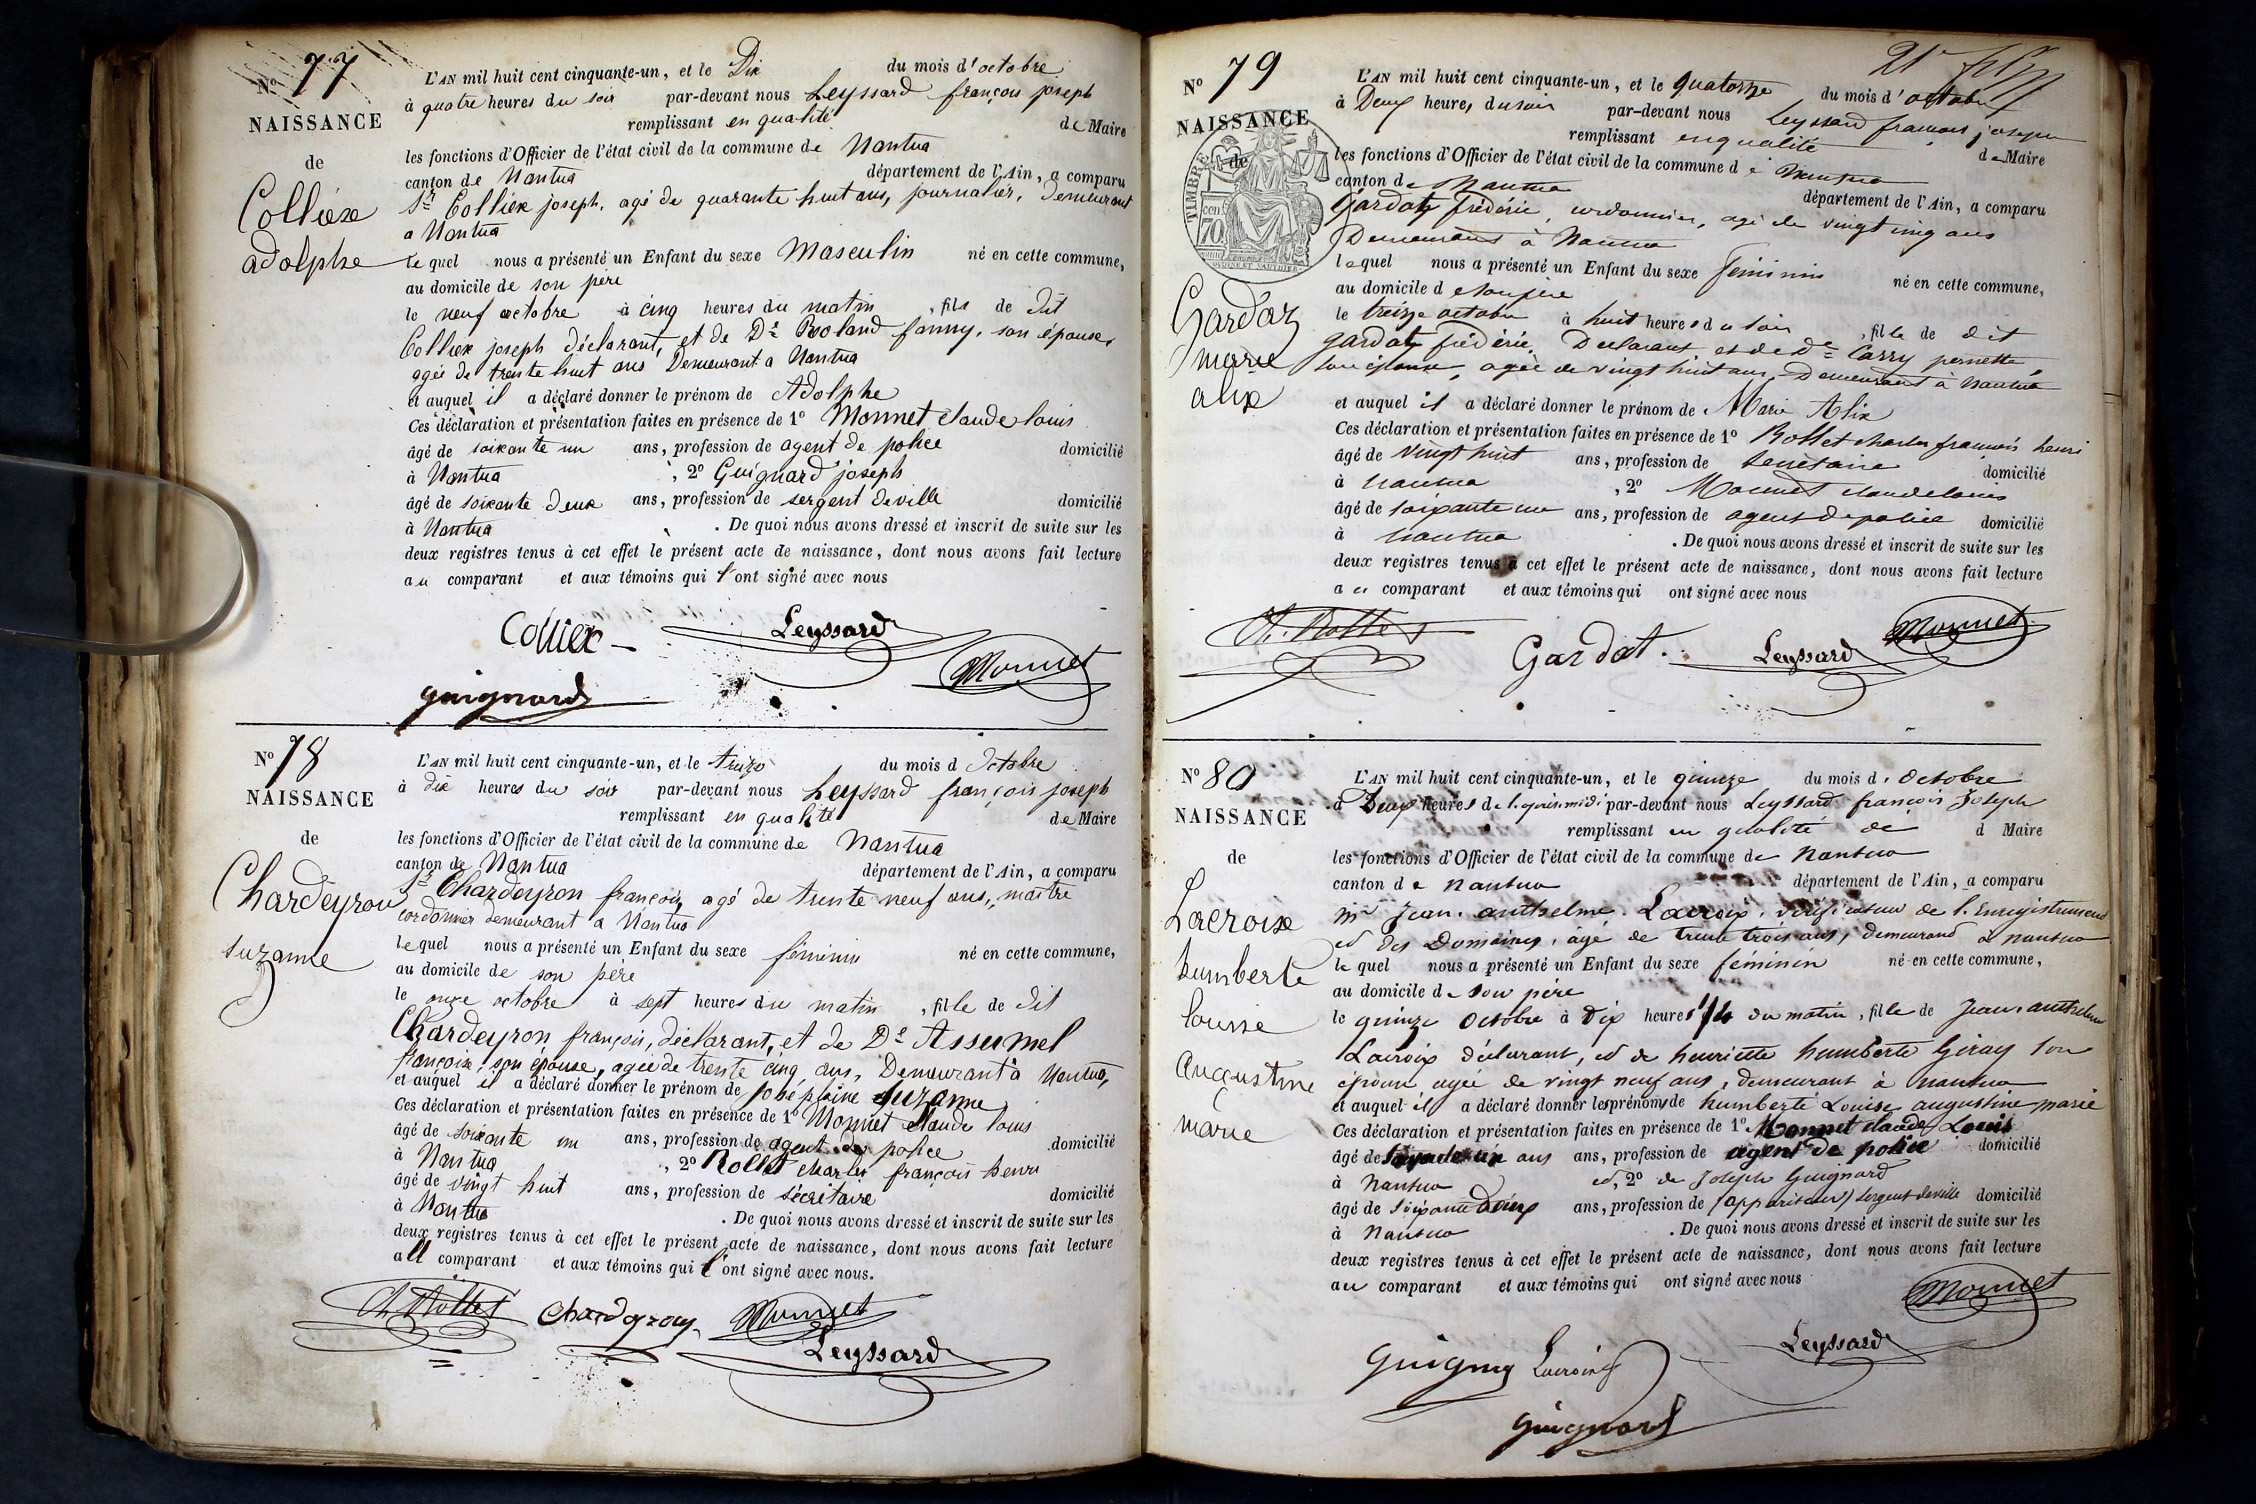 No 77
NAISSANCE
de
Colliex
adolphe
L'AN mil huit cent cinquante-un, et le Dix du mois d'octobre
à quatre heures du soir par-devant nous Leyssard françois joseph
remplissant en qualité de Maire
les fonctions d'Officier de l'état civil de la commune de Nantua
canton de Nantua département de l'Ain, a comparu
Sr Colliex joseph, agé de quarante huit ans, journalier, Demeurant
a Nantua
lequel nous a présenté un Enfant du sexe Masculin né en cette commune,
au domicile de son père
le neuf octobre à cinq heures du matin, fils de dit
Colliex joseph déclarant, et de De Roland fanny, son épouse,
agée de trente huit ans Demeurant a Nantua
et auquel il a déclaré donner le prénom de Adolphe
Ces déclaration et présentation faites en présence de 1o Monnet claude louis
âgé de soixante un ans, profession de agent de police domicilié
à Nantua, 2o Guignard joseph
âgé de soixante deux ans, profession de sergent de ville domicilié
à Nantua. De quoi nous avons dressé et inscrit de suite sur les
deux registres tenus à cet effet le présent acte de naissance, dont nous avons fait lecture
au comparant et aux témoins qui l'ont signé avec nous
Colliex Leyssard
Monnet
guignard
No 78
NAISSANCE
de
Chardeyron
suzanne
L'AN mil huit cent cinquante-un, et le treize du mois d octobre
à dix heures du soir par-devant nous Leyssard françois joseph
remplissant en qualité de Maire
les fonctions d'Officier de l'état civil de la commune de Nantua
canton de Nantua département de l'Ain, a comparu
Sr Chardeyron françois, agé de trente neuf ans, maître
cordonnier demeurant a Nantua
lequel nous a présenté un Enfant du sexe féminin né en cette commune,
au domicile de son père
le onze octobre à sept heures du matin, fille de dit
Chardeyron françois, déclarant, et de De Assumel
françoise, son épouse, agée de trente cinq ans, Demeurant à Nantua,
et auquel il a déclaré donner le prénom de joséphine suzanne
Ces déclaration et présentation faites en présence de 1o Monnet claude louis
âgé de soixante un ans, profession de agent de police domicilié
à Nantua, 2o Rollet charles françois henri
âgé de vingt huit ans, profession de sécrétaire domicilié
à Nantua. De quoi nous avons dressé et inscrit de suite sur les
deux registres tenus à cet effet le présent acte de naissance, dont nous avons fait lecture
au comparant et aux témoins qui l'ont signé avec nous.
Ch. Rollet Chardeyron Monnet
Leyssard
No 79
NAISSANCE
de
TIMBRE
70
Gardaz
marie
alix
L'AN mil huit cent cinquante-un, et le quatorze du mois d'octobre
à Deux heures du soir par-devant nous Leyssard francois joseph
remplissant en qualité de Maire
les fonctions d'Officier de l'état civil de la commune de Nantua
canton de Nantua département de l'Ain, a comparu
gardaz frédéric, cordonnier, agé de vingt cinq ans
Demeurant à Nantua
lequel nous a présenté un Enfant du sexe féminin né en cette commune,
au domicile de son père
le treize octobre à huit heures du soir, fille de dit
gardaz frédéric, Déclarant et de De Carry pernette,
son épouse, agée de vingt huit ans, Demeurant à Nantua
et auquel il a déclaré donner le prénom de Marie Alix
Ces déclaration et présentation faites en présence de 1o Rollet charles francois henri
âgé de vingt huit ans, profession de Secrétaire domicilié
à nantua, 2o Monnet claude louis
âgé de soixante un ans, profession de agent de police domicilié
à nantua. De quoi nous avons dressé et inscrit de suite sur les
deux registres tenus à cet effet le présent acte de naissance, dont nous avons fait lecture
au comparant et aux témoins qui ont signé avec nous
Ch. Rollet Gardat. Leyssard Monnet
No 80
NAISSANCE
de
Lacroix
humberte
louise
augustine
marie
L'AN mil huit cent cinquante-un, et le quinze du mois d'octobre
à Deux heures de l'après midi par-devant nous Leyssard françois Joseph
remplissant en qualité de d Maire
les fonctions d'Officier de l'état civil de la commune de Nantua
canton de nantua département de l'Ain, a comparu
Mr Jean anthelme Lacroix, vérificateur de l'Enregistrement
et des Domaines, âgé de trente trois ans, demeurant à nantua
lequel nous a présenté un Enfant du sexe féminin né en cette commune,
au domicile de son père
le quinze octobre à dix heures 1/4 du matin, fille de Jean anthelme
Lacroix déclarant, et de henriette humberte Giray son
épouse agée de vingt neuf ans, demeurant à nantua
et auquel il a déclaré donner les prénoms de humberte Louise augustine marie
Ces déclaration et présentation faites en présence de 1o Monnet claude Louis
âgé de soixante un ans ans, profession de agent de police domicilié
à nantua et, 2o de Joseph Guignard
âgé de soixante deux ans, profession de (appariteur) sergent de ville domicilié
à nantua. De quoi nous avons dressé et inscrit de suite sur les
deux registres tenus à cet effet le présent acte de naissance, dont nous avons fait lecture
au comparant et aux témoins qui ont signé avec nous
Monnet
Leyssard
Lacroix
guignard